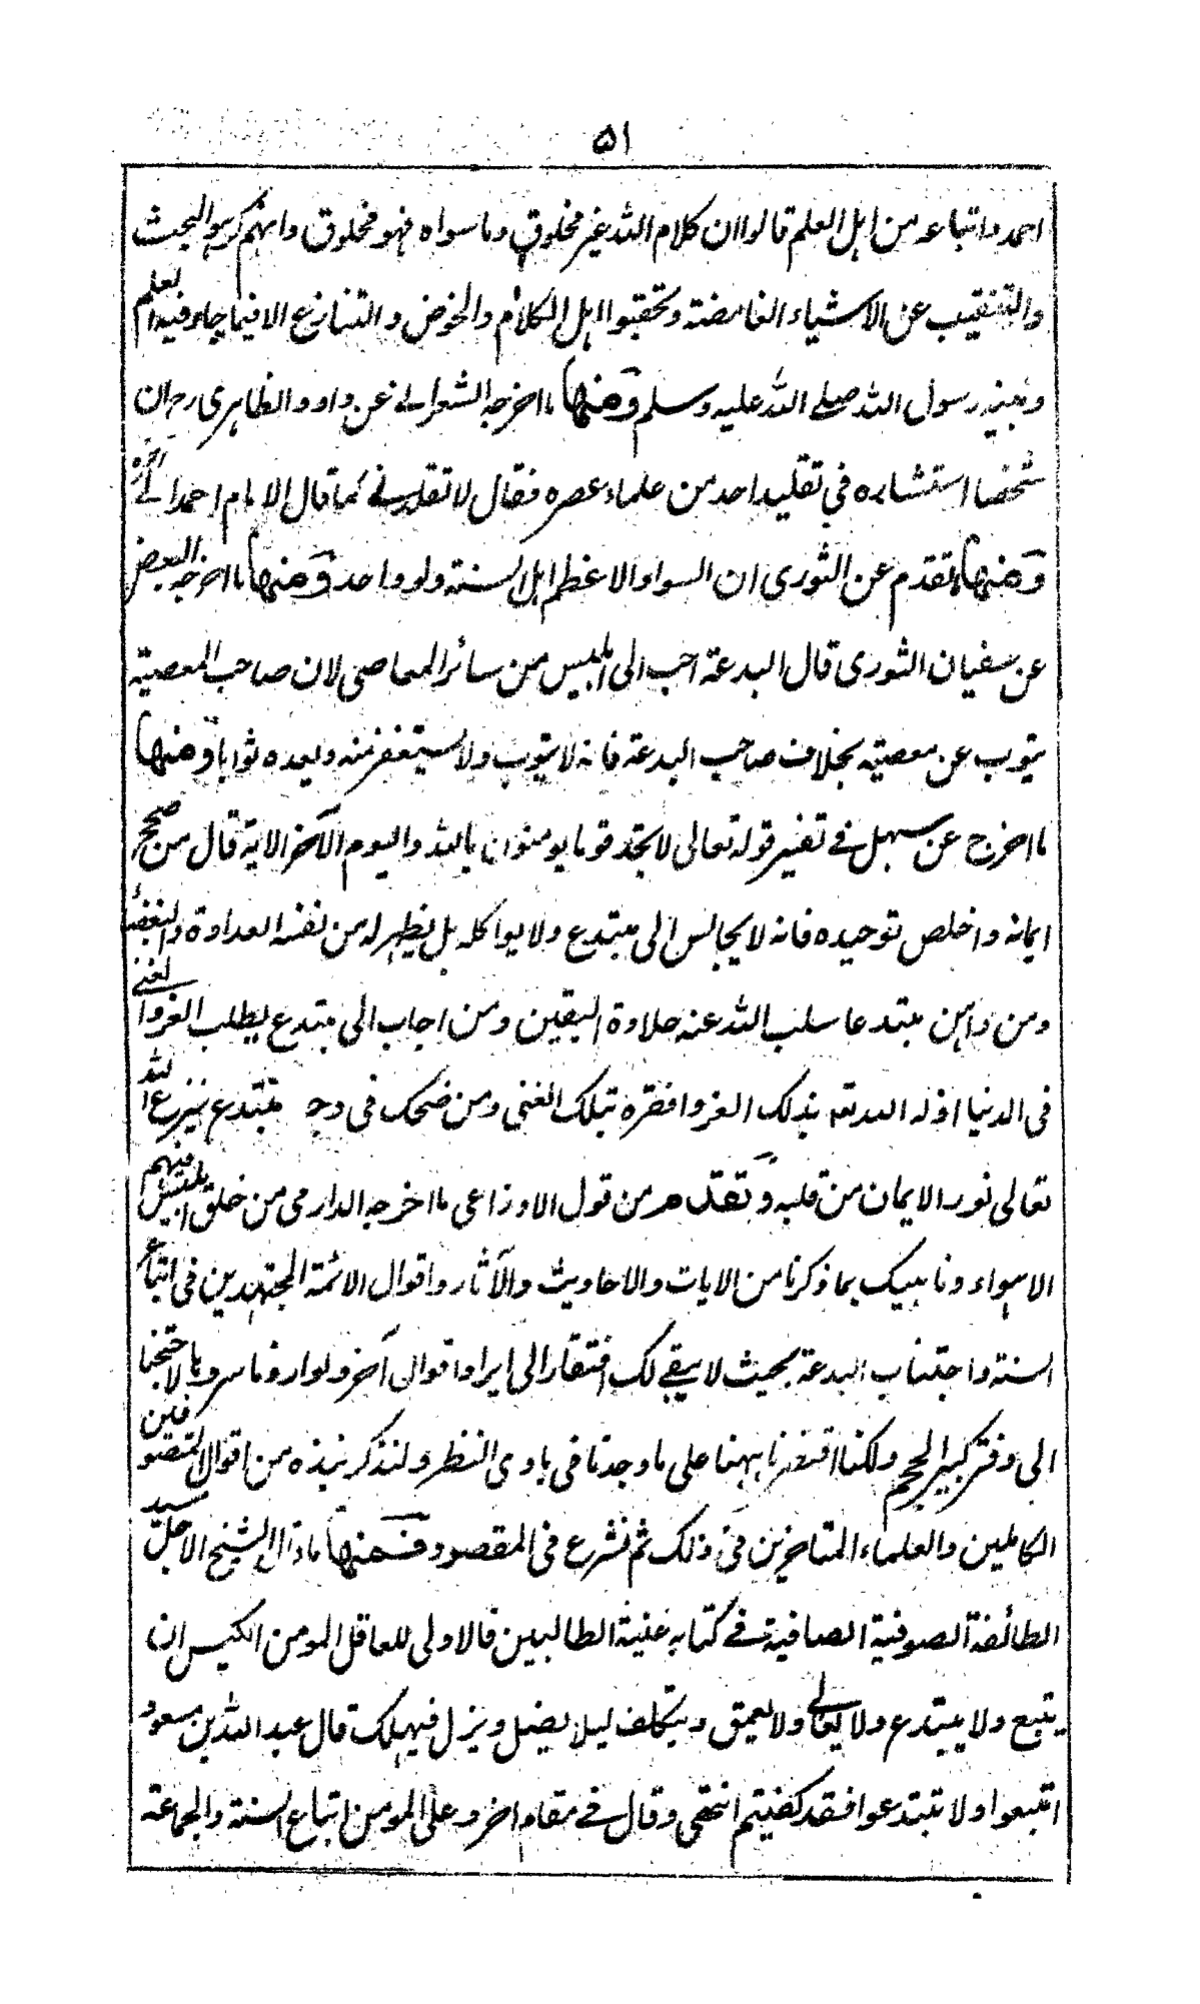 ۵۱
احمد واتباعه من اهل العلم قالوا ان كلام الله غير مخلوق وما سواه فهو مخلوق وانهم كرهوا البحث
والتنقيب عن الاشياء الغامضة وتجنبوا اهل الكلام والخوض والتنازع الا فيما جاء فيه العلم
وبينه رسول الله صلى الله عليه وسلم ومنها ما اخرجه الشعرانى عن داود الظاهرى رح ان
شخصا استشاره فى تقليد احد من علماء عصره فقال لا تقلدنى كما قال الامام احمد الى آخره
ومنها ما تقدم عن الثورى ان السواد الاعظم اهل السنة ولو واحد ومنها ما اخرجه البعض
عن سفيان الثورى قال البدعة احب الى ابليس من سائر المعاصى لان صاحب المعصية
يتوب عن معصيته بخلاف صاحب البدعة فانه لا يتوب ولا يستغفر منه ويعده ثوابا ومنها
ما اخرج عن سهل فى تفسير قوله تعالى لا تجد قوما يومنون بالله واليوم الآخر الاية قال من صحح
ايمانه واخلص توحيده فانه لا يجالس الى مبتدع ولا يواكله بل يظهر له من نفسه العداوة والبغضاء
ومن داهن مبتدعا سلب الله عنه حلاوة اليقين ومن اجاب الى مبتدع يطلب العز والغنى
فى الدنيا اذله الله بذلك العز وافقره بتلك الغنى ومن ضحك فى وجه مبتدع ينزع الله
تعالى نور الايمان من قلبه وتقدم من قول الاوزاعى ما اخرجه الدارمى من خلق ابليس فيهم
الاهواء وناهيك بما ذكرنا من الايات والاحاديث والآثار واقوال الائمة المجتهدين فى اتباع
السنة واجتناب البدعة بحيث لا يبقى لك افتقار الى ايراد اقوال آخر ولو اردنا سردها لاحتجنا
الى دفتر كبير الحجم ولكنا اقتصرنا ههنا على ما وجدنا فى بادى النظر ولنذكر نبذه من اقوال المتصوفين
الكاملين والعلماء المتاخرين فى ذلك ثم نشرع فى المقصود فمنها ما قال الشيخ الاجل سيد
الطائفة الصوفية الصافية فى كتابه غنية الطالبين فالاولى للعاقل المومن الكيس ان
يتبع ولا يبتدع ولا يغالى ولا يعمق ويتكلف ليلا يضل ويزل فيهلك قال عبد الله بن مسعود
اتبعوا ولا تبتدعوا فقد كفيتم انتهى وقال فى مقام اخر وعلى المومن اتباع السنة والجماعة